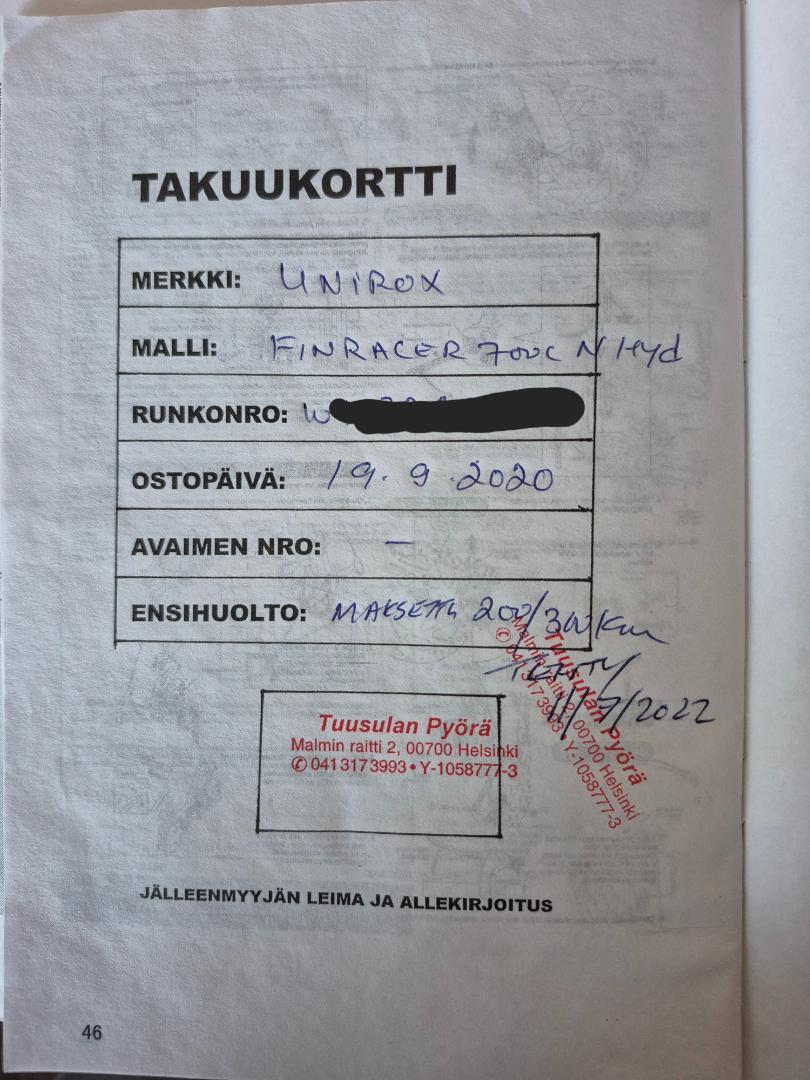 TAKUUKORTTI
MERKKI: UNIROX
MALLI: FINRACER 700C N Hyd
RUNKONRO: W
OSTOPÄIVÄ: 19.9.2020
AVAIMEN NRO: –
ENSIHUOLTO: MAKSETTU 200/300 Km
TEHTY
11/7/2022
Tuusulan Pyörä
Malmin raitti 2, 00700 Helsinki
✆ 041 317 3993 • Y-1058777-3
Tuusulan Pyörä
Malmin raitti 2, 00700 Helsinki
✆ 041 317 3993 Y-1058777-3
JÄLLEENMYYJÄN LEIMA JA ALLEKIRJOITUS
46